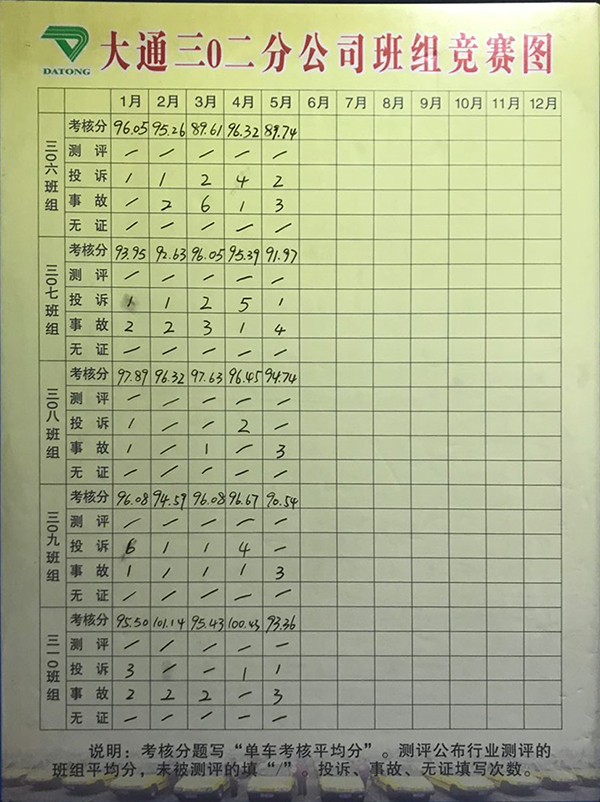 DATONG
大通三0二分公司班组竞赛图
1月 2月 3月 4月 5月 6月 7月 8月 9月 10月 11月 12月
三0六班组
考核分 96.05 95.26 89.61 96.32 89.74
测评 / / / / /
投诉 1 1 2 4 2
事故 / 2 6 1 3
无证 / / / / /
三0七班组
考核分 93.95 92.63 96.05 95.39 91.97
测评 / / / / /
投诉 1 1 2 5 1
事故 2 2 3 1 4
无证 / / / / /
三0八班组
考核分 97.89 96.32 97.63 96.45 94.74
测评 / / / / /
投诉 1 / / 2 /
事故 1 / 1 / 3
无证 / / / / /
三0九班组
考核分 96.08 94.59 96.08 96.67 90.54
测评 / / / / /
投诉 6 1 1 4 /
事故 1 1 1 1 3
无证 / / / / /
三一0班组
考核分 95.50 101.14 95.43 100.43 93.36
测评 / / / / /
投诉 3 / / 1 1
事故 2 2 2 / 3
无证 / / / / /
说明：考核分题写“单车考核平均分”。测评公布行业测评的
班组平均分，未被测评的填“/”。投诉、事故、无证填写次数。